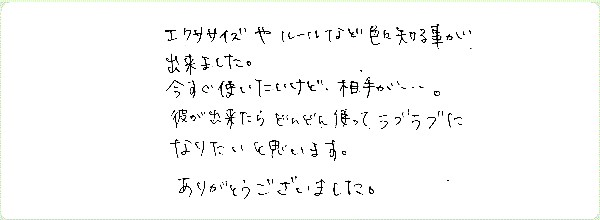 エクササイズや ルールなど色々知る事が
出来ました。
今すぐ使いたいけど、相手が・・・。
彼が出来たら どんどん使って ラブラブに
なりたいと思います。
ありがとうございました。